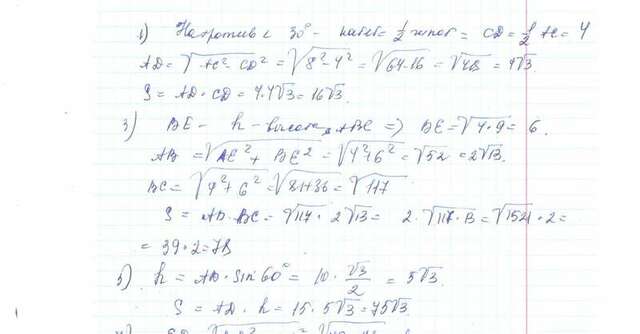 1) Напротив ∠ 30° - катет = 1/2 гипот = CD = 1/2 AC = 4
AD = √AC² - CD² = √8² - 4² = √64-16 = √48 = 4√3.
S = AD · CD = 4·4√3 = 16√3.
3) BE - h - высота ABC => BE = √4·9 = 6.
AB = √AE² + BE² = √4²+6² = √52 = 2√13.
BC = √9²+6² = √81+36 = √117
S = AB · BC = √117 · 2√13 = 2·√117·13 = √1521 · 2 =
= 39 · 2 = 78
5) h = AB · sin 60° = 10 · √3/2 = 5√3
S = AD · h = 15 · 5√3 = 75√3.